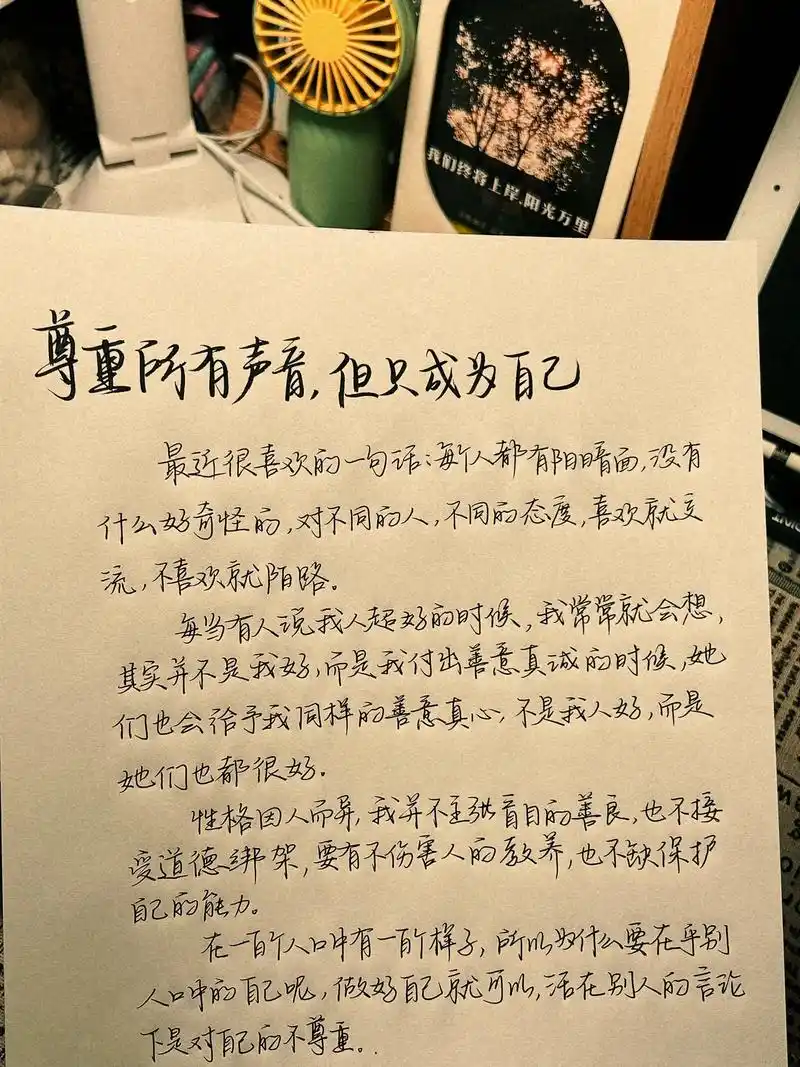 我们终将上岸,阳光万里
尊重所有声音,但只成为自己
最近很喜欢的一句话:每个人都有阴暗面,没有
什么好奇怪的,对不同的人,不同的态度,喜欢就交
流,不喜欢就陌路。
每当有人说我人超好的时候,我常常就会想,
其实并不是我好,而是我付出善意真诚的时候,她
们也会给予我同样的善意真心,不是我人好,而是
她们也都很好.
性格因人而异,我并不主张盲目的善良,也不接
受道德绑架,要有不伤害人的教养,也不缺保护
自己的能力。
在一百个人口中有一百个样子,所以为什么要在乎别
人口中的自己呢,做好自己就可以,活在别人的言论
下是对自己的不尊重..